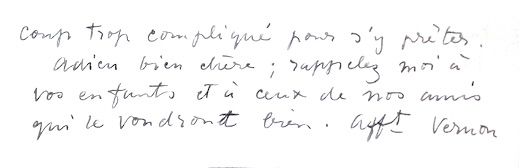 coup trop compliqué pour s'y prêter.
Adieu bien chère ; rappelez moi à
vos enfants et à ceux de nos amis
qui le voudront bien. Afft Vernon